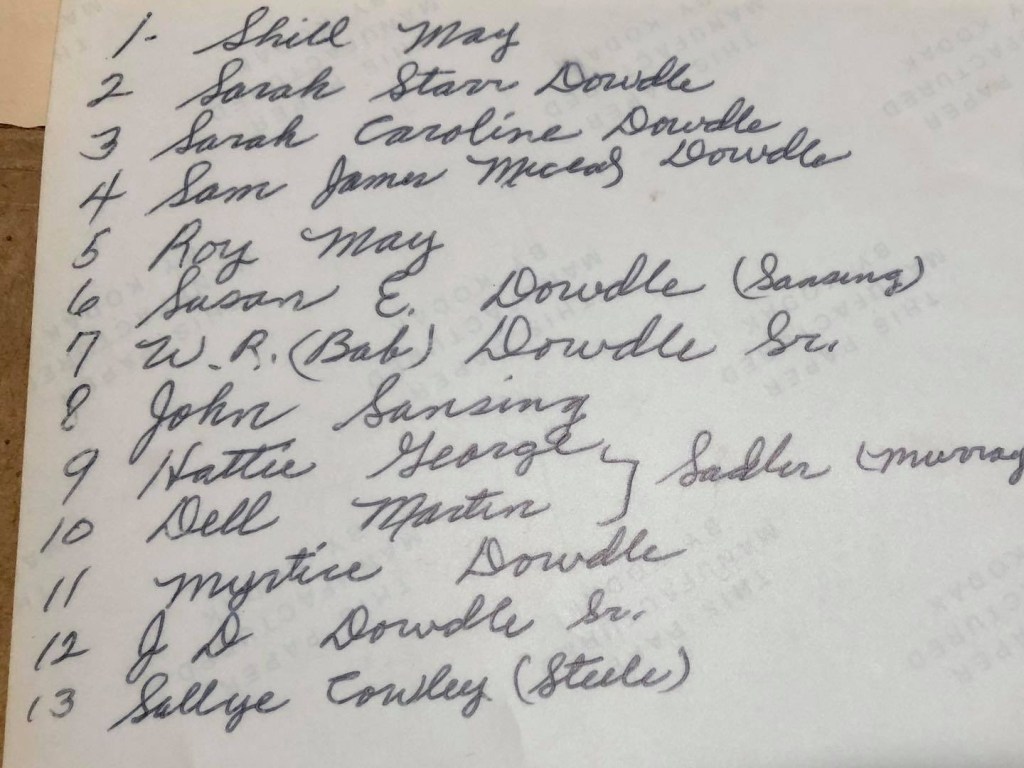 1- Shill May
2 Sarah Starr Dowdle
3 Sarah Caroline Dowdle
4 Sam James Dowdle
5 Roy May
6 Susan E. Dowdle (Sansing)
7 W. R. (Bab) Dowdle Sr.
8 John Sansing
9 Hattie George } Sadler (Murray
10 Dell Martin
11 Myrtice Dowdle
12 J D Dowdle Sr.
13 Sallye Cowley (Steele)
THIS PAPER
MANUFACTURED
BY KODAK